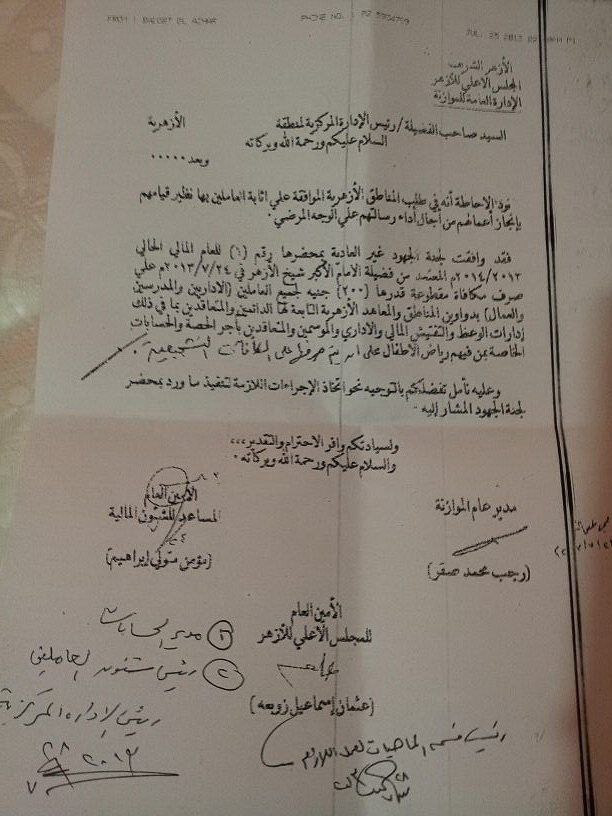 FROM : BUDGET EL AZHAR PHONE NO. : 02 5934799 JUL. 25 2013
الأزهر الشريف
المجلس الاعلي للأزهر
الإدارة العامة للموازنة
السيد صاحب الفضيلة / رئيس الإدارة المركزية لمنطقة الأزهرية
السلام عليكم ورحمة الله وبركاته
وبعد ٠٠٠٠٠
نود الاحاطة أنه في طلب المناطق الأزهرية الموافقة علي اثابة العاملين بها نظير قيامهم
بإنجاز أعمالهم من أجل أداء رسالتهم علي الوجه المرضي ٠
فقد وافقت لجنة الجهود غير العادية بمحضرها رقم (١) للعام المالي الحالي
٢٠١٤/٢٠١٣م المعتمد من فضيلة الامام الأكبر شيخ الأزهر في ٢٠١٣/٧/٢٤م علي
صرف مكافأة مقطوعة قدرها (٢٠٠) جنيه لجميع العاملين (الاداريين والمدرسين
والعمال) بدواوين المناطق والمعاهد الأزهرية التابعة لها الدائمين والمتعاقدين بما في ذلك
إدارات الوعظ والتفتيش المالي والاداري والموسمين والمتعاقدين بأجر الحصة والحسابات
الخاصة بمن فيهم رياض الأطفال على ان يتم صرفها على المكافآت التشجيعية ٠
وعليه نأمل تفضلكم بالتوجيه نحو اتخاذ الإجراءات اللازمة لتنفيذ ما ورد بمحضر
لجنة الجهود المشار إليه ٠
ولسيادتكم وافر الاحترام والتقدير،،،
والسلام عليكم ورحمة الله وبركاته ٠
مدير عام الموازنة
(رجب محمد صقر)
الأمين العام
المساعد للشئون المالية
(مؤمن متولي إبراهيم)
الأمين العام
للمجلس الأعلي للأزهر
(عثمان إسماعيل زوبعه)
١ مدير الحسابات
٢ رئيس شئون العاملين
رئيس الإدارة المركزية
٢٠١٣